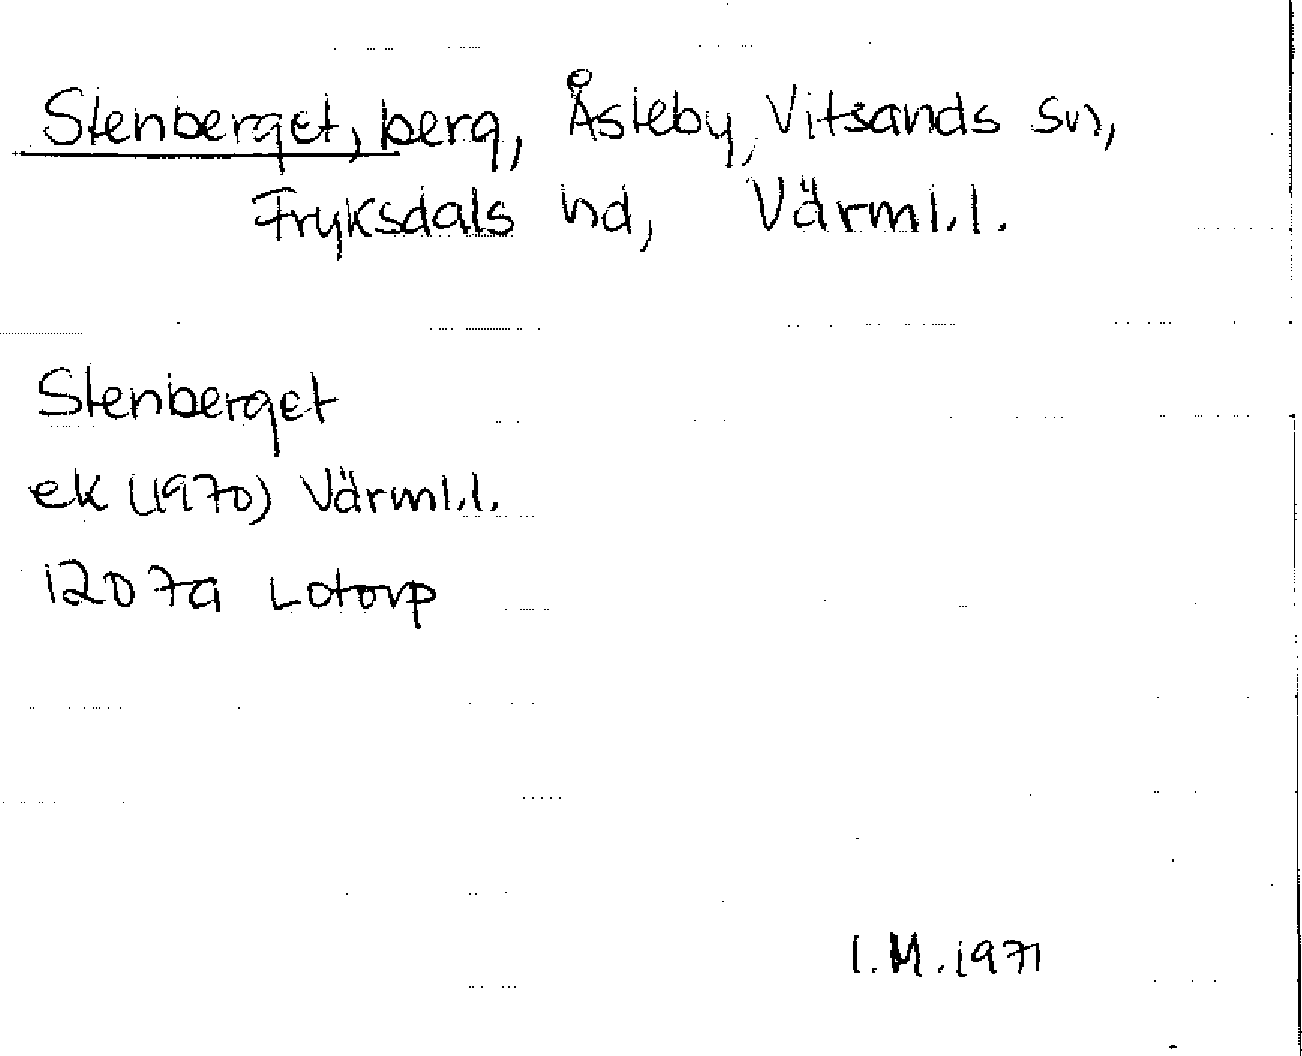 Stenberget, berg, Åsteby, Vitsands sn,
Fryksdals hd, Värml.l.
Stenberget
ek (1970) Värml.l.
1207a Lotorp
I.M.1971